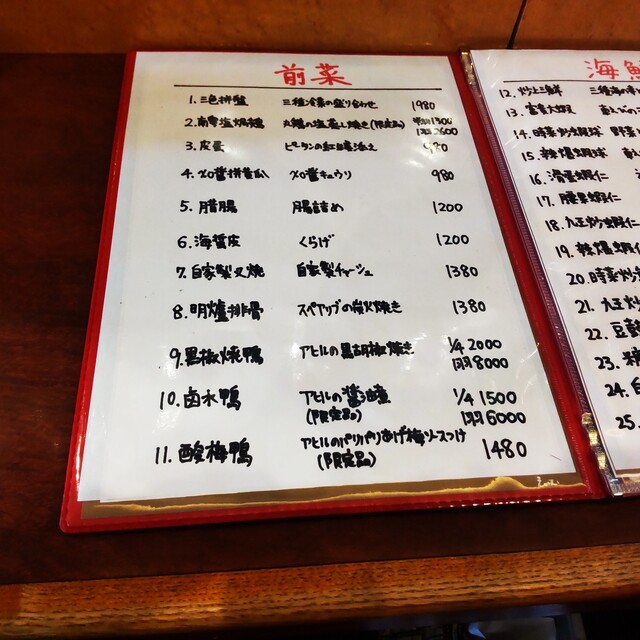 前菜
1. 三色拼盤 三種冷菜の盛り合わせ 1980
2. 南 塩焗鶏 丸鶏の塩蒸し焼き(限定品) 半羽1300
1羽2600
3. 皮蛋 ピータンの紅生姜添え 980
4. XO醤拼黄瓜 XO醤キュウリ 980
5. 腊腸 腸詰め 1200
6. 海蜇皮 くらげ 1200
7. 自家製叉焼 自家製チャーシュ 1380
8. 明爐排骨 スペアリブの炭火焼き 1380
9. 黒椒焼鴨 アヒルの黒胡椒焼き 1/4 2000
1羽 8000
10. 卤水鴨 アヒルの醤油煮 1/4 1500
(限定品) 1羽 6000
11. 酸梅鴨 アヒルのパリパリあげ梅ソースつけ 1480
(限定品)
海鮮
12. 炒三鮮 三種海の
13. 富貴大蝦
14. 時菜炒蝦球 野菜
15. 辣爆蝦球
16. 滑蛋蝦仁
17. 腰果蝦仁
18. 九王炒蝦仁
19. 辣爆蝦仁
20. 時菜炒
21. 九王炒
22. 豆鼓
23.
24.
25.